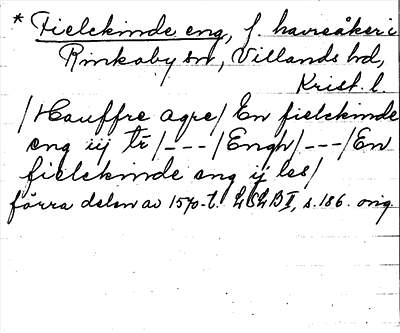 * Fielekinde eng, f. havreåker i
Rinkaby sn, Villands hd,
Krist. l.
/Hauffre agre/ En fielekinde
eng iij tr/---/Engh/---/En
fielekinde eng ij les/
förra delen av 1570-t. LSLB II, s. 186. orig.